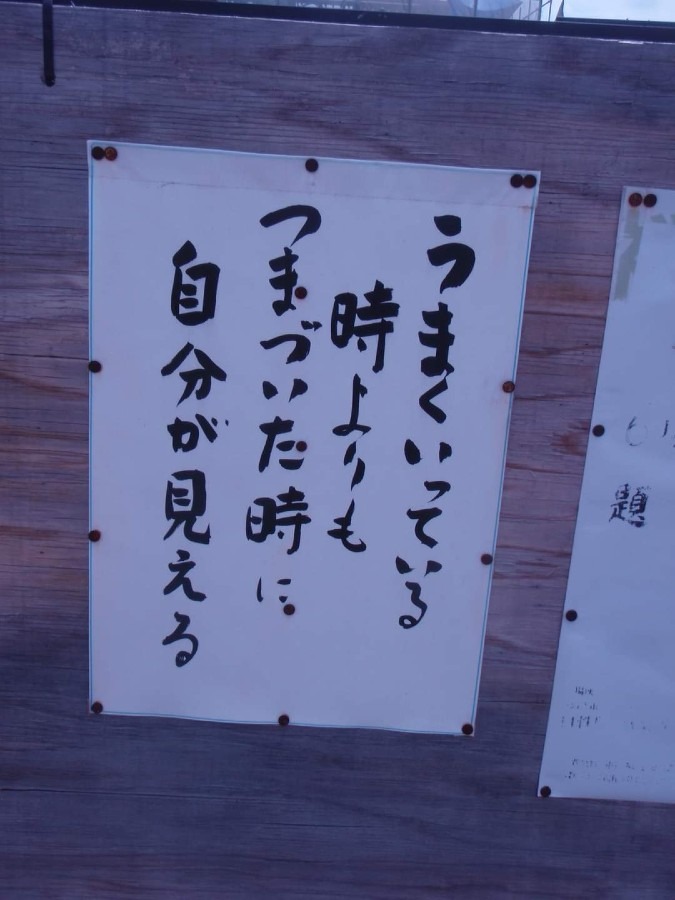 うまくいっている
時よりも
つまづいた時に
自分が見える
題